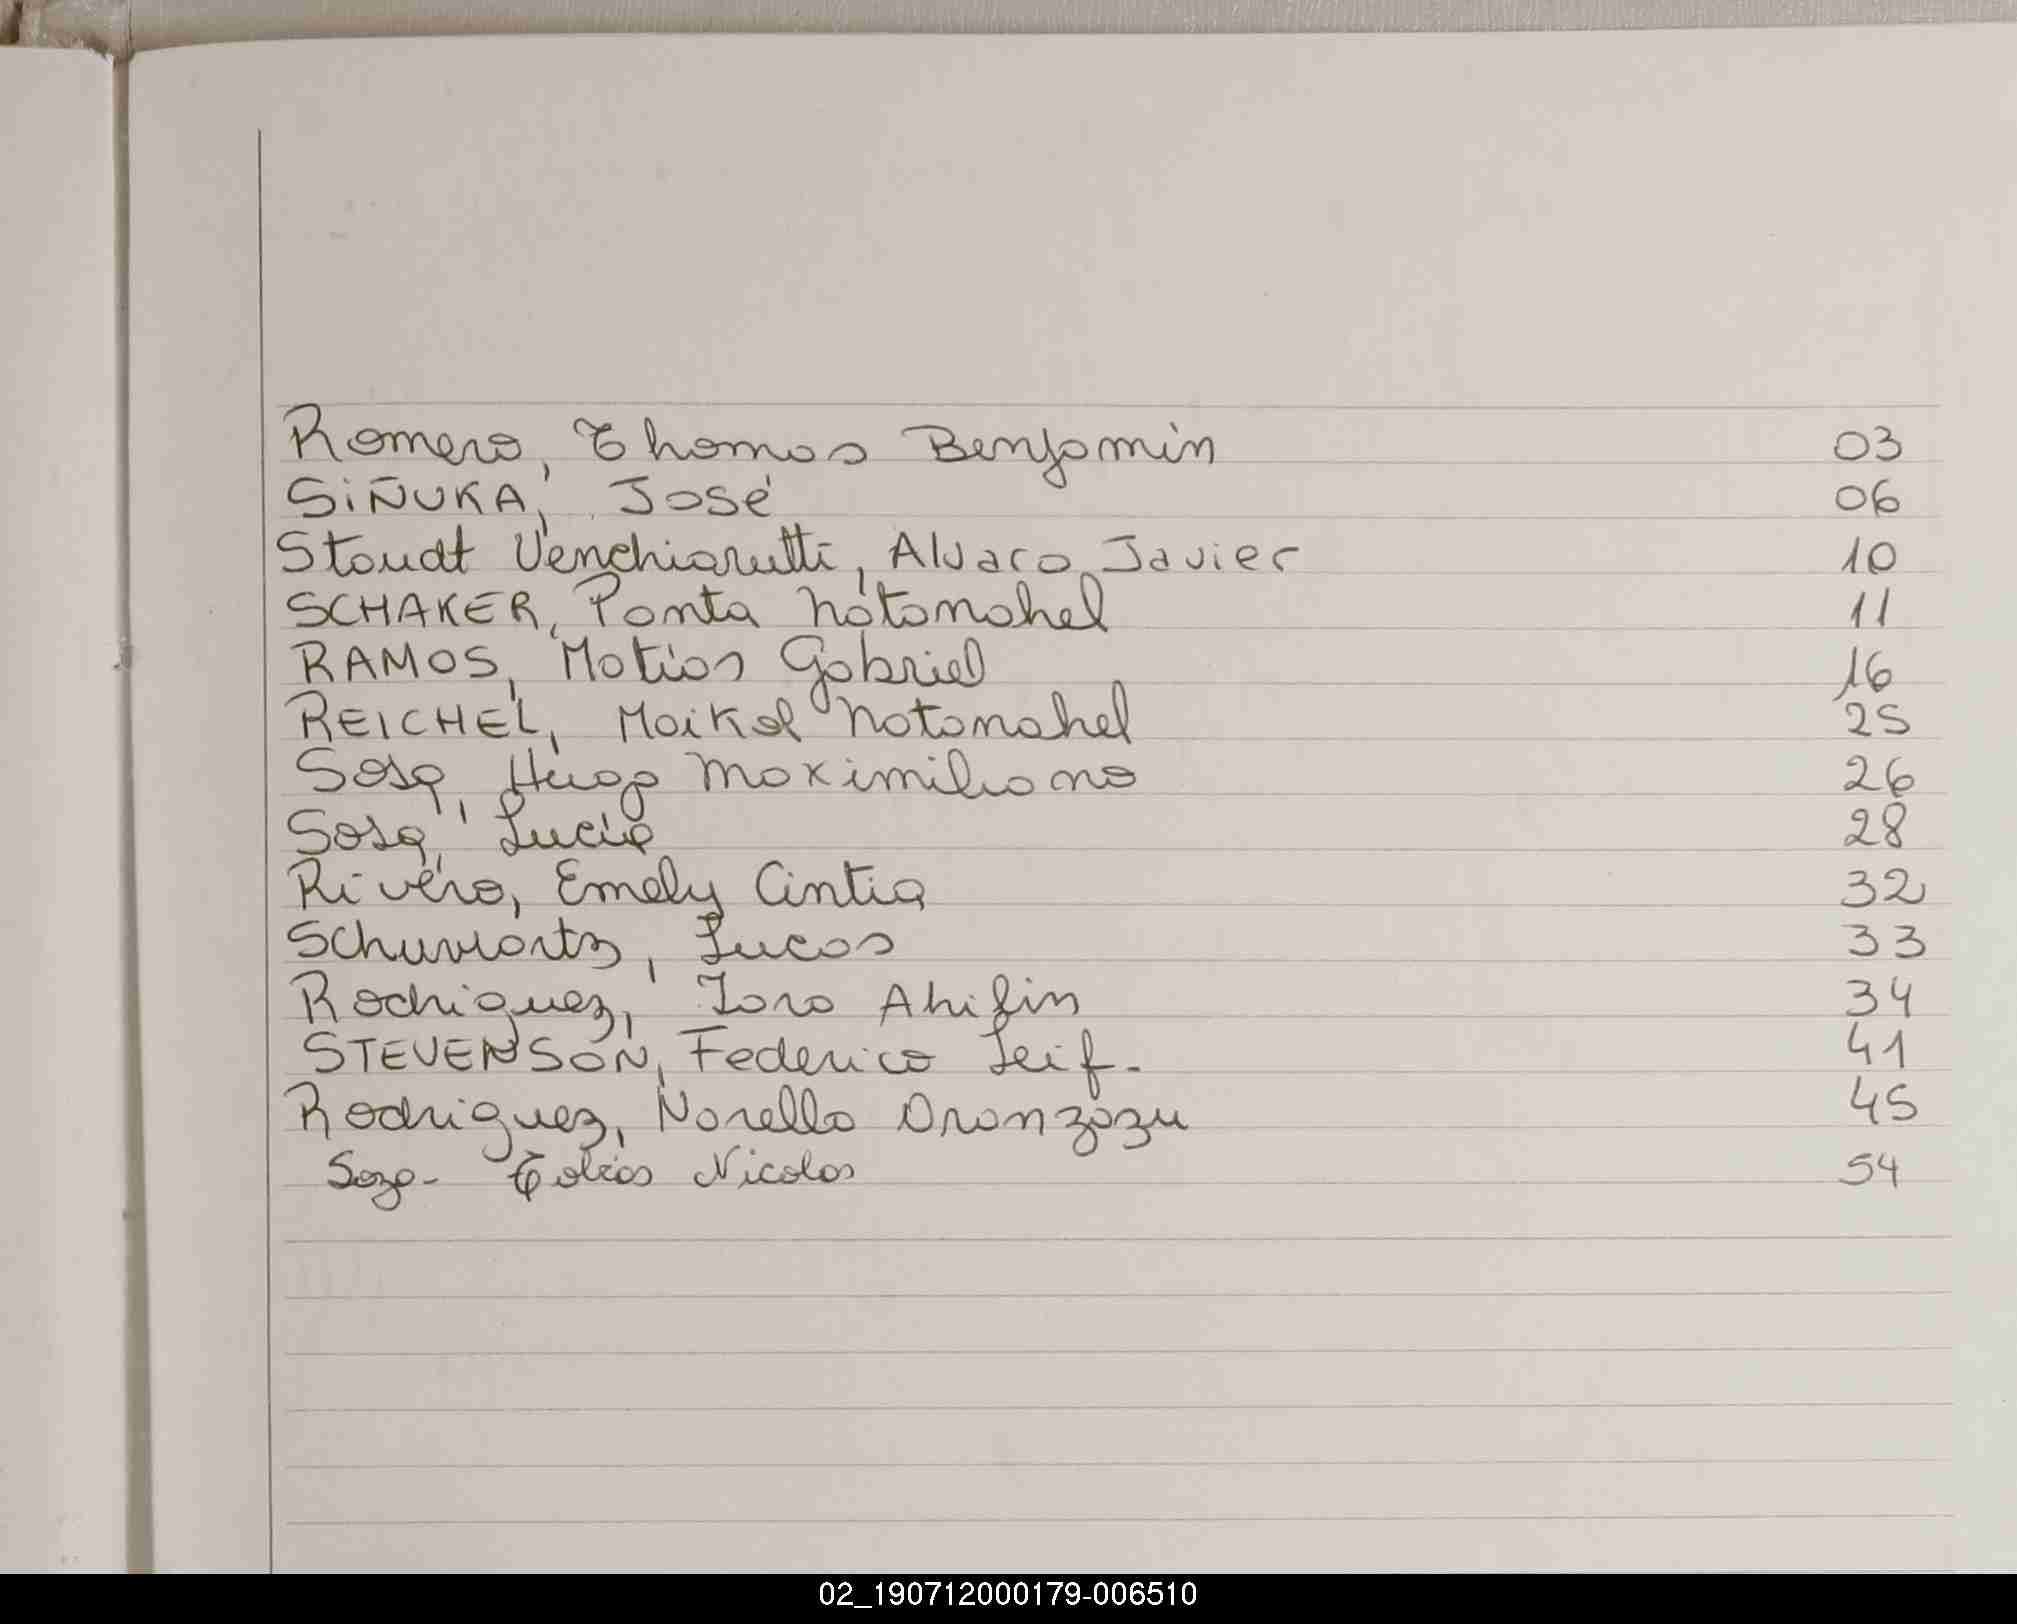 Romero, Thomas Benjamin 03
SIÑUKA, José 06
Staudt Venchiarutti, Alvaro Javier 10
SCHAKER, Ponta Natanahel 11
RAMOS, Matias Gabriel 16
REICHEL, Maikol Natanahel 25
Sosa, Hugo Maximiliano 26
Sosa, Lucia 28
Rivero, Emely Cintia 32
Schuvartz, Lucas 33
Rodriguez, Ahilin 34
STEVENSON, Federico Leif. 41
Rodriguez, Norella Oranzazu 45
Soza- Tobias Nicolas 54
02_190712000179-006510